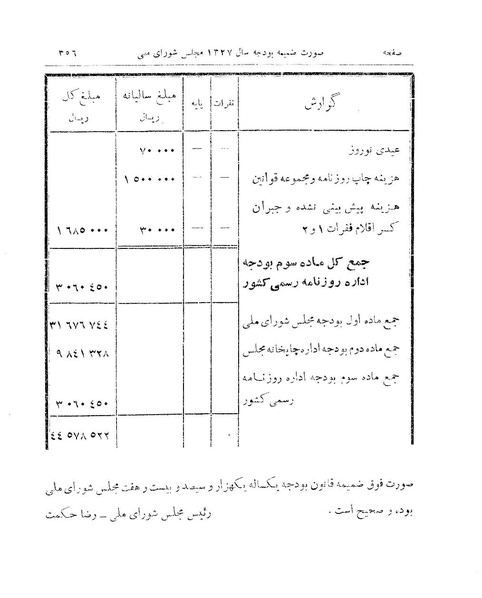 صفحه صورت ضمیمه بودجه سال ۱۳۲۷ مجلس شورای ملی ۳۵۶
گوارش نفرات پایه مبلغ سالیانه ریال مبلغ کل ریال
عیدی نوروز — — ۷۰ ۰۰۰
هزینه چاپ روزنامه و مجموعه قوانین — — ۱ ۵۰۰ ۰۰۰
هزینه پیش بینی نشده و جبران
کسر اقلام فقرات ۱ و ۲ — — ۳۰ ۰۰۰ ۱ ۶۸۵ ۰۰۰
جمع کل ماده سوم بودجه
اداره روزنامه رسمی کشور ۳ ۰۶۰ ٤۵۰
جمع ماده اول بودجه مجلس شورای ملی ۳۱ ۶۷۶ ۷٤٤
جمع ماده دوم بودجه اداره چاپخانه مجلس ۹ ۸٤۱ ۳۲۸
جمع ماده سوم بودجه اداره روزنامه
رسمی کشور ۳ ۰۶۰ ٤۵۰
٤٤ ۵۷۸ ۵۲۲
صورت فوق ضمیمه قانون بودجه یکساله یکهزار و سیصد و بیست و هفت مجلس شورای ملی
بوده و صحیح است . رئیس مجلس شورای ملی ــ رضا حکمت